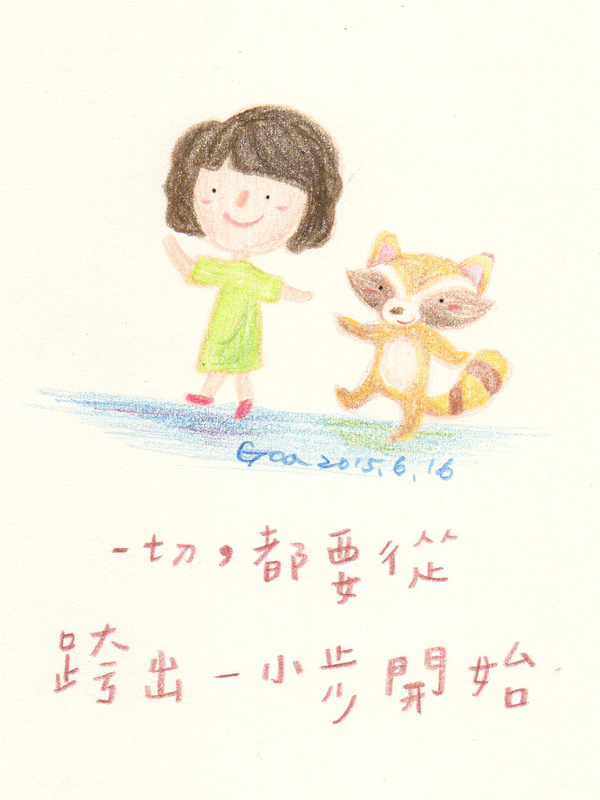 Goa 2015.6.16
一切，都要從
跨出一小步開始